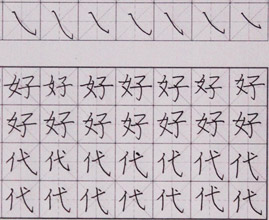 ㇂㇂㇂㇂㇂㇂㇂
好好好好好好好
好好好好好好好
代代代代代代代
代代代代代代代